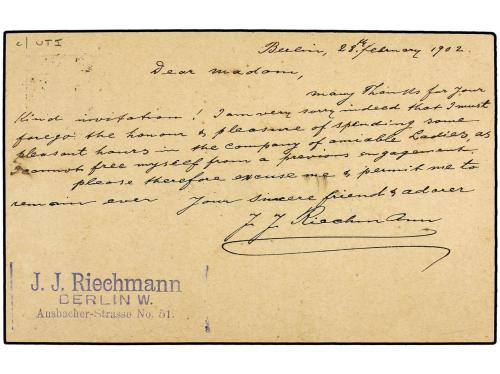 c/ UTI
Berlin, 28th february 1902.
Dear madam,
many Thanks for your
Kind invitation! I am very sorry indeed that I must
forego the honour & pleasure of spending some
pleasant hours in the company of amiable Ladies, as
I cannot free myself from a previous engagement.
please therefore excuse me & permit me to
remain ever Your sincere friend & adorer
J. J. Riechmann
J. J. Riechmann
BERLIN W.
Ansbacher-Strasse No. 51.